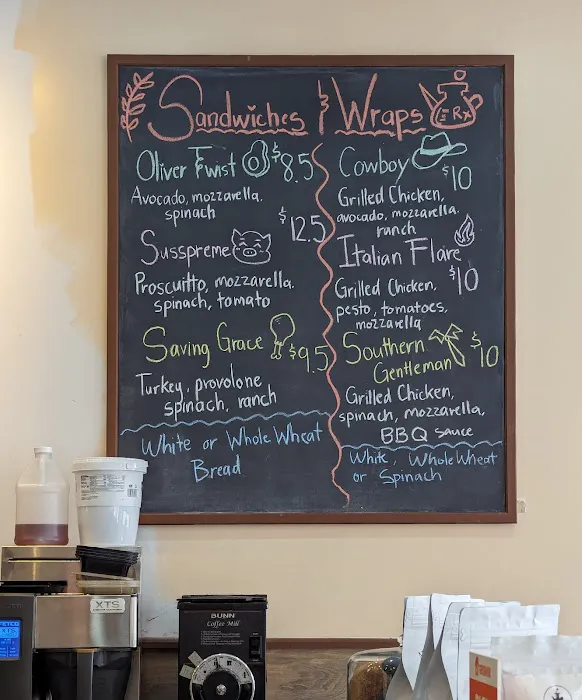 Sandwiches & Wraps
Rx
Oliver Twist $8.5
Avocado, mozzarella,
spinach
Susspreme $12.5
Proscuitto, mozzarella,
spinach, tomato
Saving Grace $9.5
Turkey, provolone
spinach, ranch
White or Whole Wheat
Bread
Cowboy $10
Grilled Chicken,
avocado, mozzarella,
ranch
Italian Flare $10
Grilled Chicken,
pesto, tomatoes,
mozzarella
Southern
Gentleman $10
Grilled Chicken,
spinach, mozzarella,
BBQ sauce
White, Whole Wheat
or Spinach
FETCO
XTS
XTS
BUNN
Coffee Mill